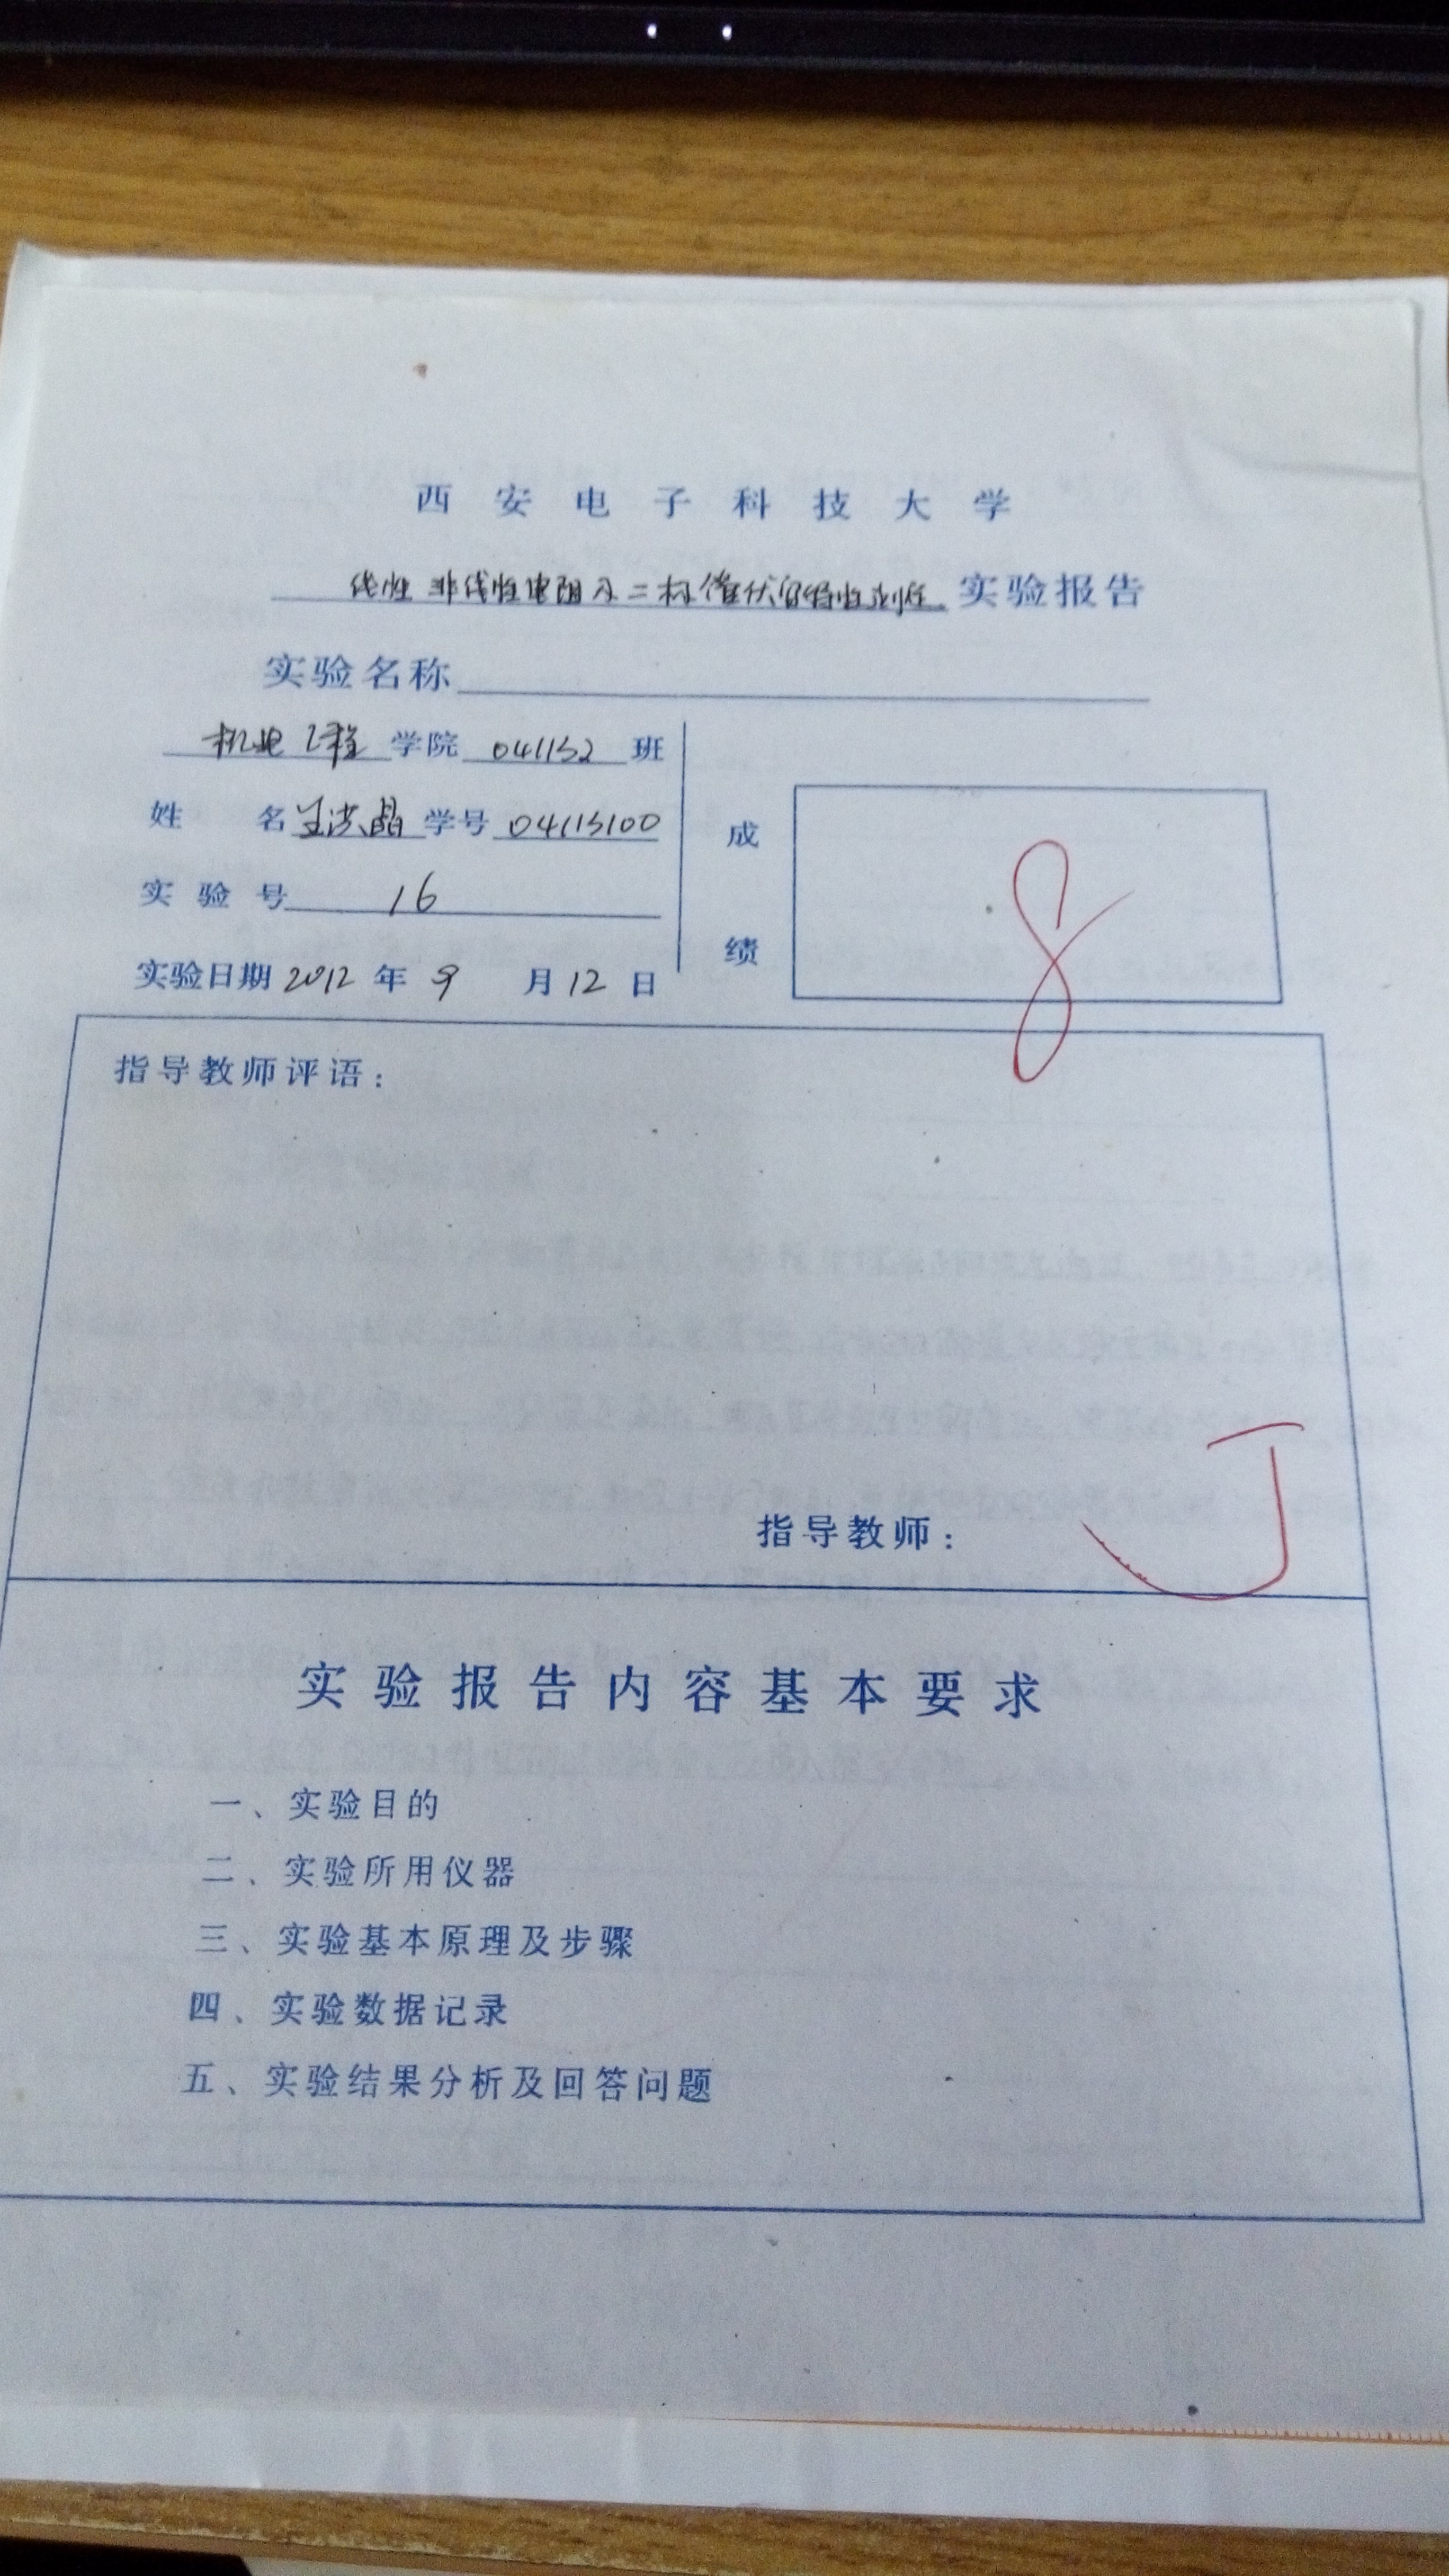 西安电子科技大学
线性 非线性电阻及二极管伏安特性测定 实验报告
实验名称
机电工程 学院 041132 班
姓 名 学号 04113100
实验号 16
实验日期 2012 年 9 月 12 日
成绩
8
指导教师评语：
指导教师：
实验报告内容基本要求
一、实验目的
二、实验所用仪器
三、实验基本原理及步骤
四、实验数据记录
五、实验结果分析及回答问题